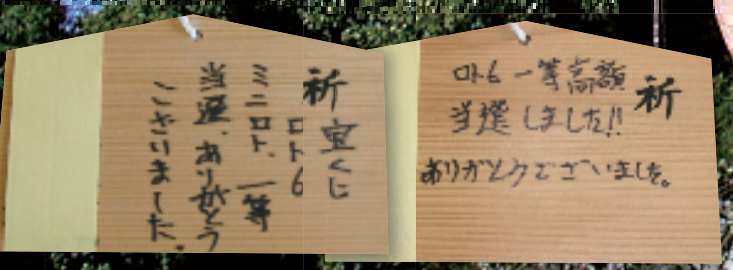 祈 宝くじ
ロト6
ミニロト、一等
当選、ありがとう
ございました。
祈
ロト6 一等高額
当選しました!!
ありがとうございました。